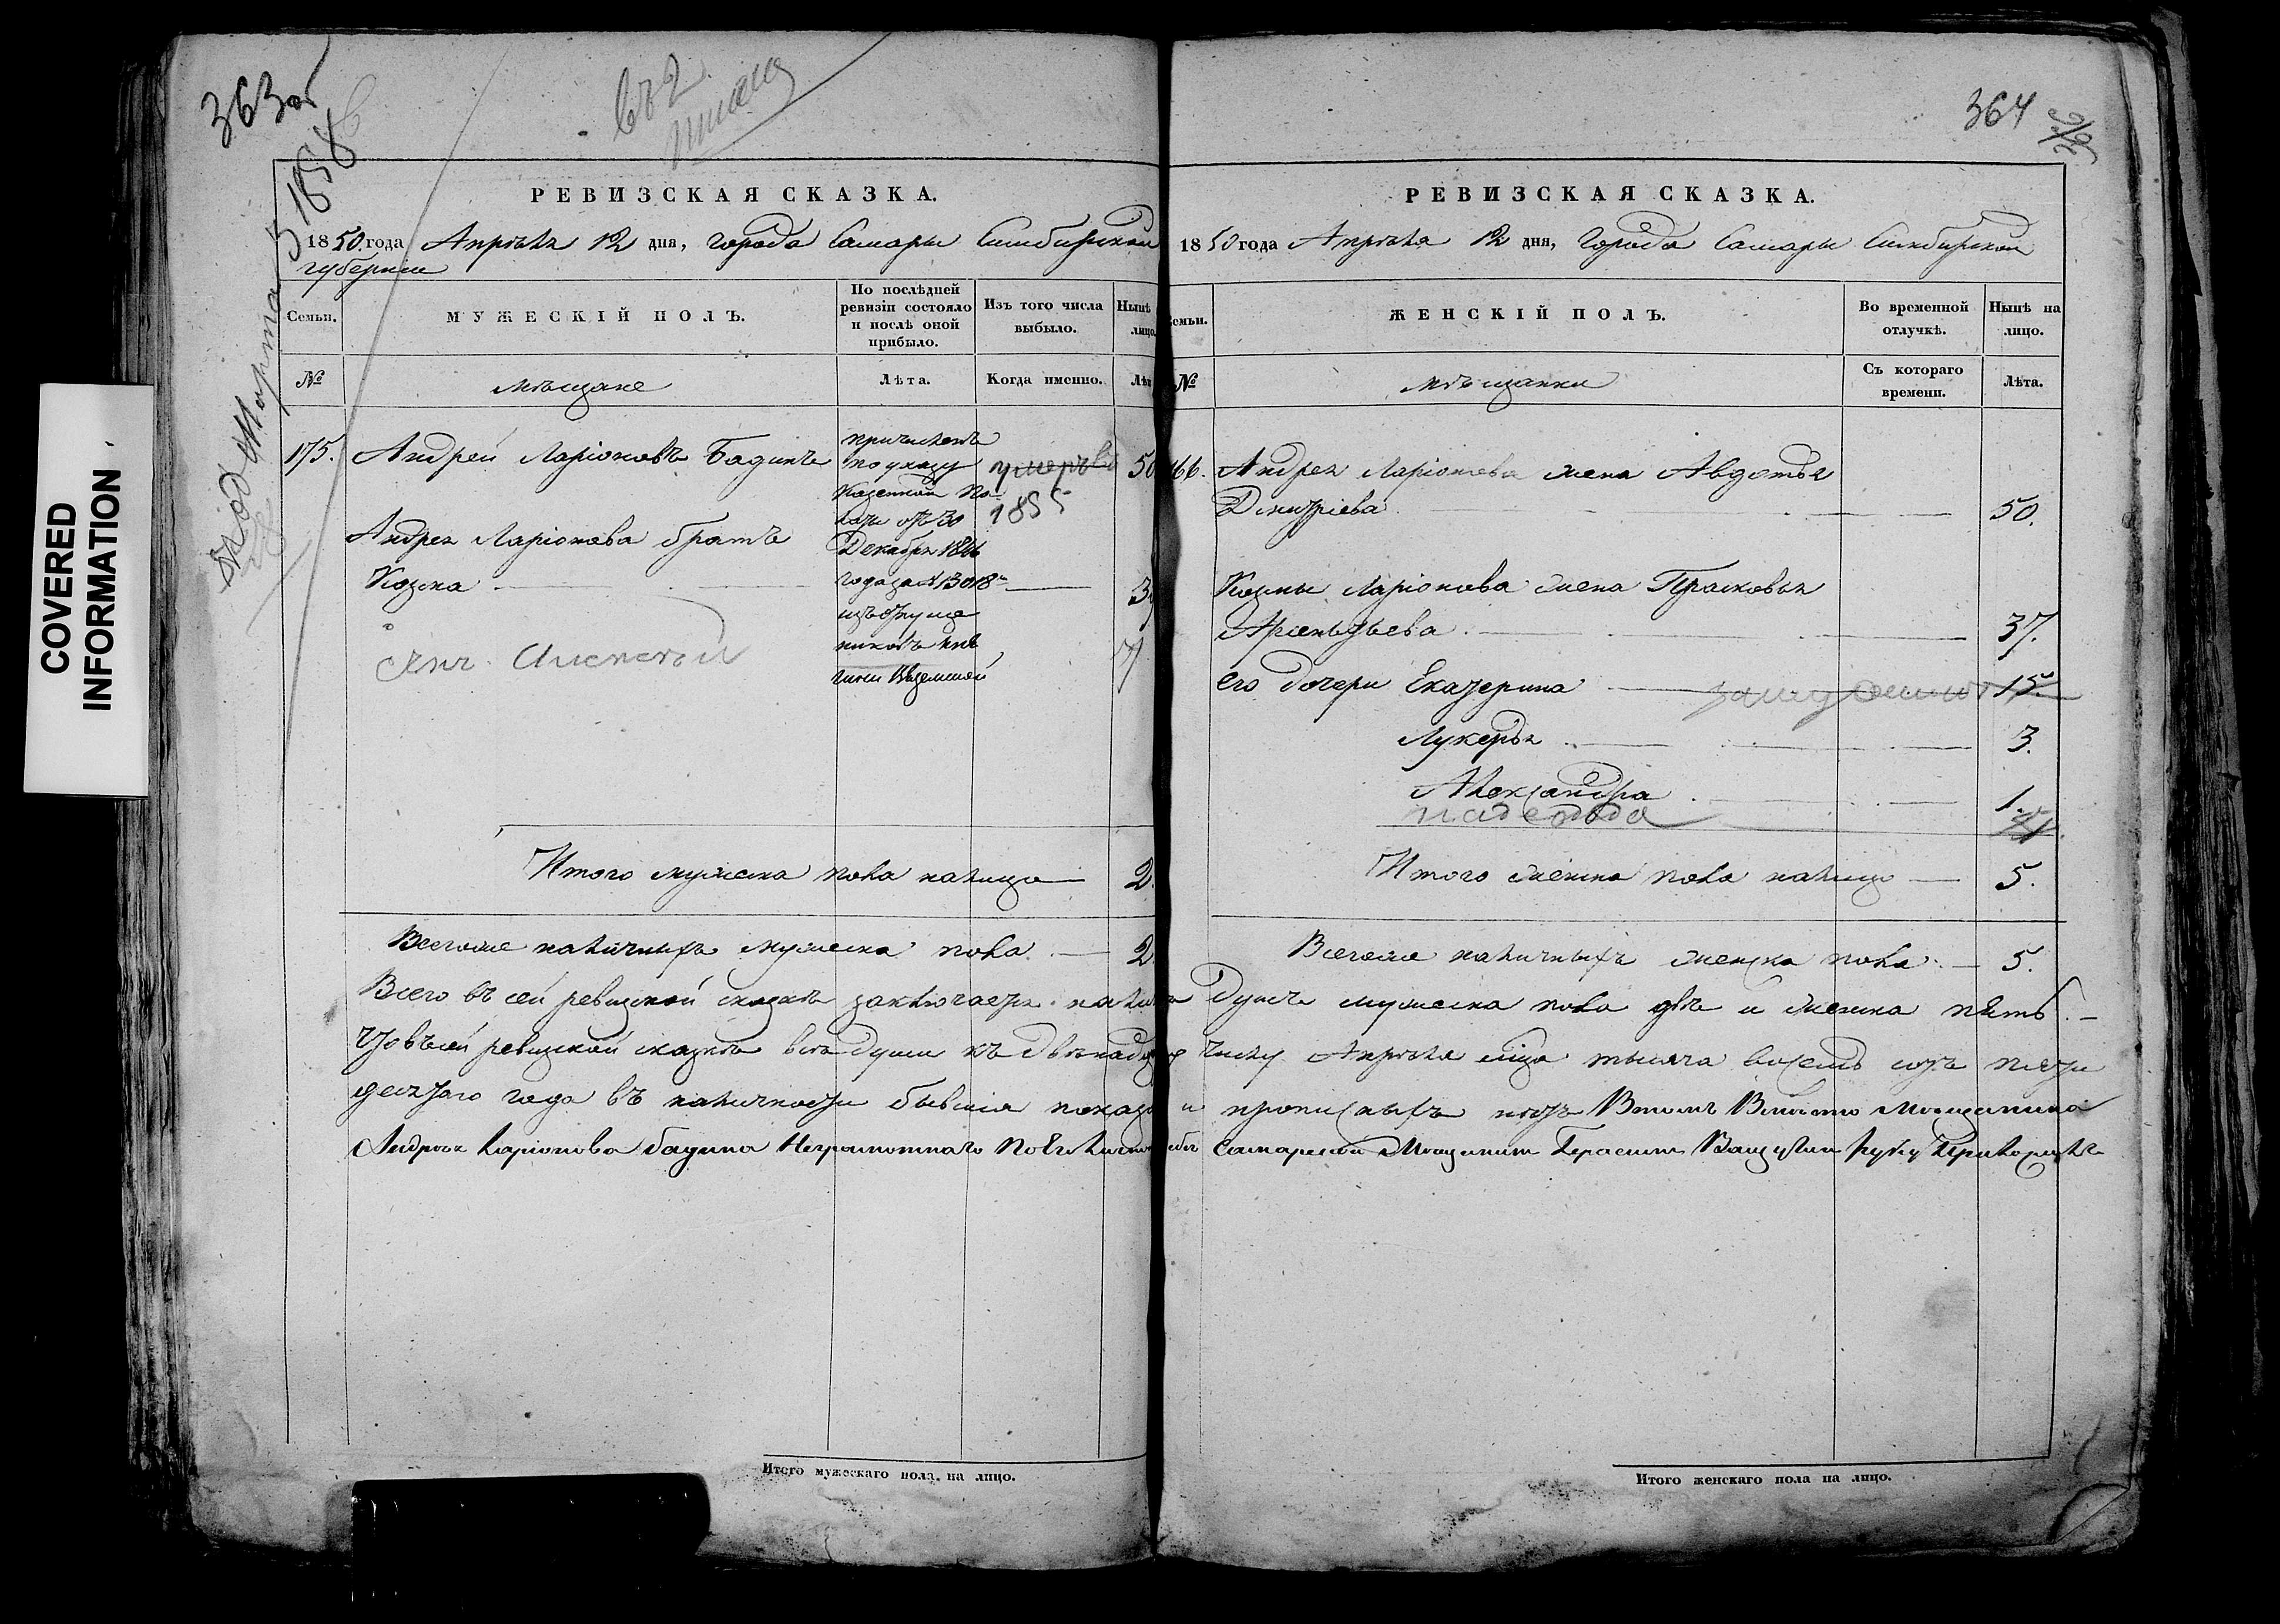 363 об
364
РЕВИЗСКАЯ СКАЗКА.
1850 года Апрѣля 12 дня, города Самары Симбирской
губерніи
Семьи.
МУЖЕСКІЙ ПОЛЪ.
По послѣдней ревизіи состояло и послѣ оной прибыло.
Изъ того числа выбыло.
Нынѣ лицо.
№
мѣщане
Лѣта.
Когда именно.
175. Андрей Ларіоновъ Бадинъ
причисленъ
по указу
Казенной Па-
латы отъ 30
Декабря 1846
года за № 13018
умеръ въ
1855
50
Андрея Ларіонова братъ
Козма
сынъ Алексѣй
Итого мужеска пола налицо 2.
Всегоже наличныхъ мужеска пола. 2.
РЕВИЗСКАЯ СКАЗКА.
1850 года Апрѣля 12 дня, города Самары Симбирской
Семьи.
ЖЕНСКІЙ ПОЛЪ.
Во временной отлучкѣ.
Нынѣ на лицо.
№
мѣщанки
Съ котораго времени.
Лѣта.
166. Андрея Ларіонова жена Авдотья
Дмитріева 50.
Козмы Ларіонова жена Прасковья
Арсентьева 37.
Его дочери Екатерина замужем 15
Лукерья 3.
Александра 1.
Надежда
Итого женска пола налицо 5.
Всегоже наличныхъ женска пола. 5.
Всего въ сей ревизской сказкѣ заключается налицо Душъ мужеска пола двѣ и женска пять.
Что въ сей ревизской сказкѣ всѣ души къ двѣнадцатому числу Апрѣля мѣца тысяча восемь сотъ пяти
десятаго года въ наличности бывшія показаны и прописныхъ нѣтъ Втомъ Вмѣсто Мещанина
Андрея Ларіонова бадина Неграмотнаго По его Самарской Мещанинъ Герасимъ Руку Приложилъ
Итого мужескаго пола, на лицо.
Итого женскаго пола на лицо.
COVERED
INFORMATION